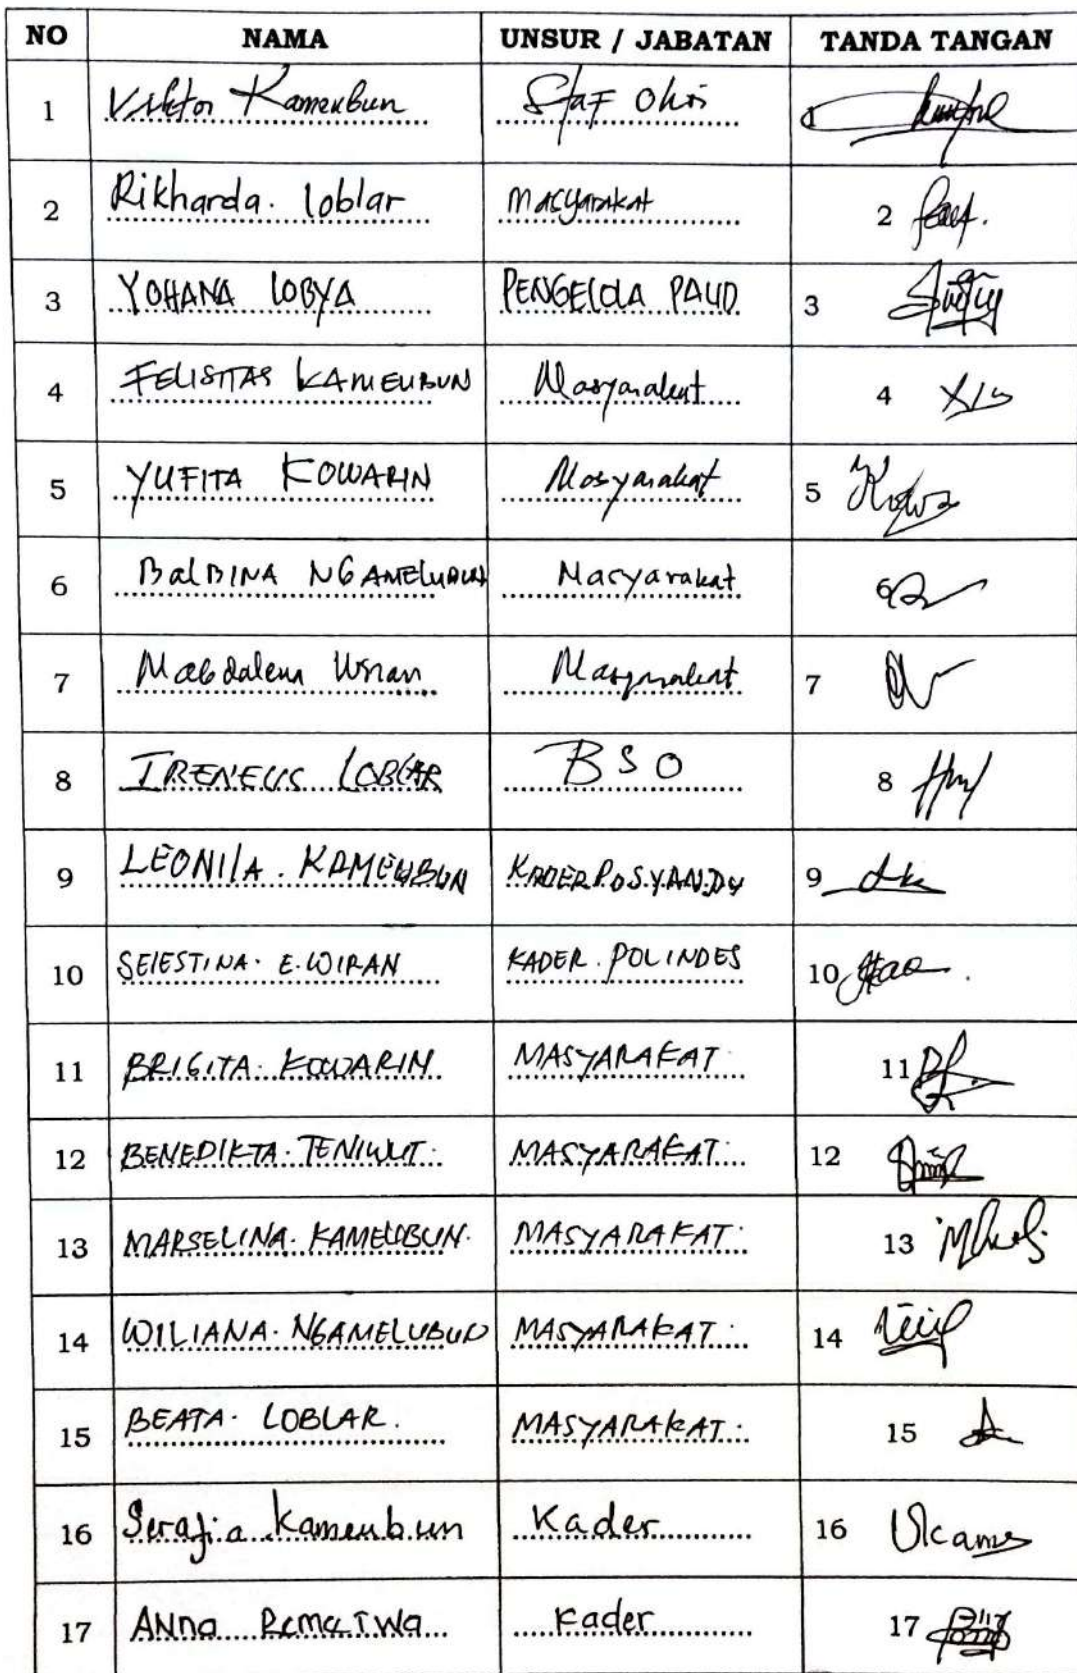 NO NAMA UNSUR / JABATAN TANDA TANGAN
1 Viktor Kameubun Staf Ohoi 1
2 Rikharda. loblar Masyarakat 2
3 YOHANA LOBYA PENGELOLA PAUD 3
4 FELISITAS KAMEUBUN Masyarakat 4
5 YUFITA KOWARIN Masyarakat 5
6 BalBINA NGAMELUBUN Masyarakat 6
7 Magdalena Wiran Masyarakat 7
8 IRENEUS LOBLAR BSO 8
9 LEONIlA. KAMEUBUN KADER POSYANDU 9
10 SElESTINA. E. WIRAN KADER. POLINDES 10
11 BRIGITA. KOWARIN MASYARAKAT. 11
12 BENEDIKTA. TENIWUT. MASYARAKAT. 12
13 MARSELINA. KAMEUBUN. MASYARAKAT. 13
14 WILIANA. NGAMELUBUN MASYARAKAT. 14
15 BEATA. LOBLAR. MASYARAKAT. 15
16 Serafia Kameubun Kader 16
17 ANNa RematWa kader 17